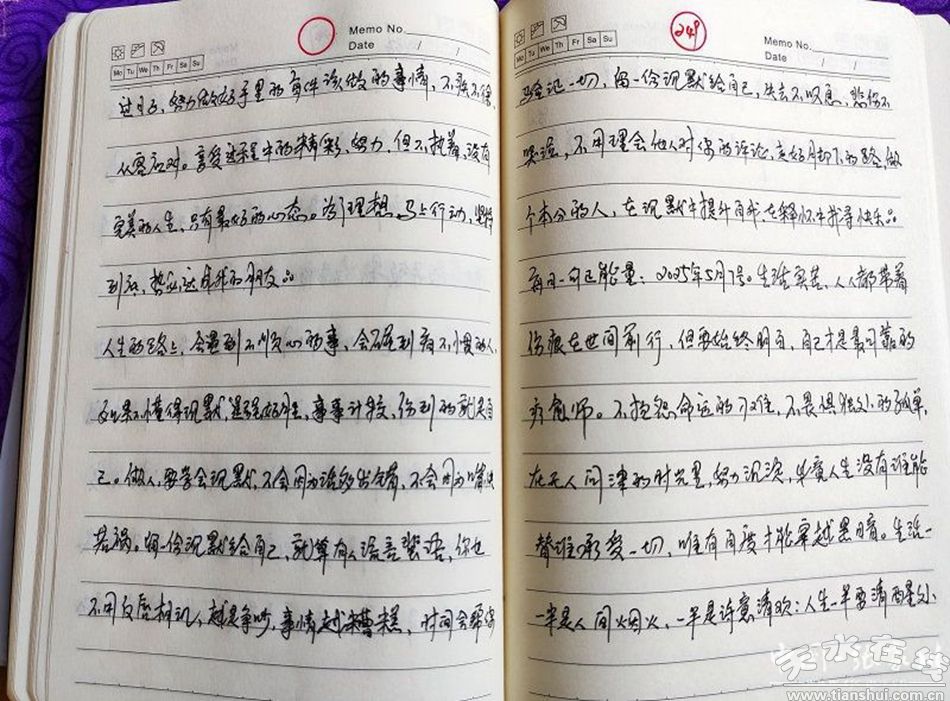 Memo No.
Date / /
Mo Tu We Th Fr Sa Su
过日子，努力做好手里的每件该做的事情，不急不躁，
从容面对。享受过程中的精彩，努力，但不执着，没有
完美的人生，只有最好的心态。为了理想，马上行动，坚持
到底，势必达成我的朋友。
人生的路上，会遇到不顺心的事，会碰到看不惯的人，
如果不懂得沉默，逞强好胜，事事计较，伤到的就是自
己。做人，要学会沉默，不会因为话多出差错，不会因为嘴快
惹祸。留一份沉默给自己，就算有人流言蜚语，你也
不用反唇相讥，越是争吵，事情越糟糕，时间会帮你
249
Memo No.
Date / /
Mo Tu We Th Fr Sa Su
验证一切，留一份沉默给自己，失去不叹息，悲伤不
哭泣，不用理会他人对你的评论，走好脚下的路，做
个本分的人，在沉默中提升自我，在释怀中找寻快乐。
每日一句正能量：2025年5月7号。生活实苦，人人都带着
伤痕在世间前行，但要始终明白，自己才是最可靠的
疗愈师。不抱怨命运的刁难，不畏惧独处的孤单，
在无人问津的时光里，努力沉淀，毕竟人生没有谁能
替谁承受一切，唯有自度才能穿越黑暗。生活一
一半是人间烟火，一半是诗意清欢；人生一半要清醒
天水在线
www.tianshui.com.cn